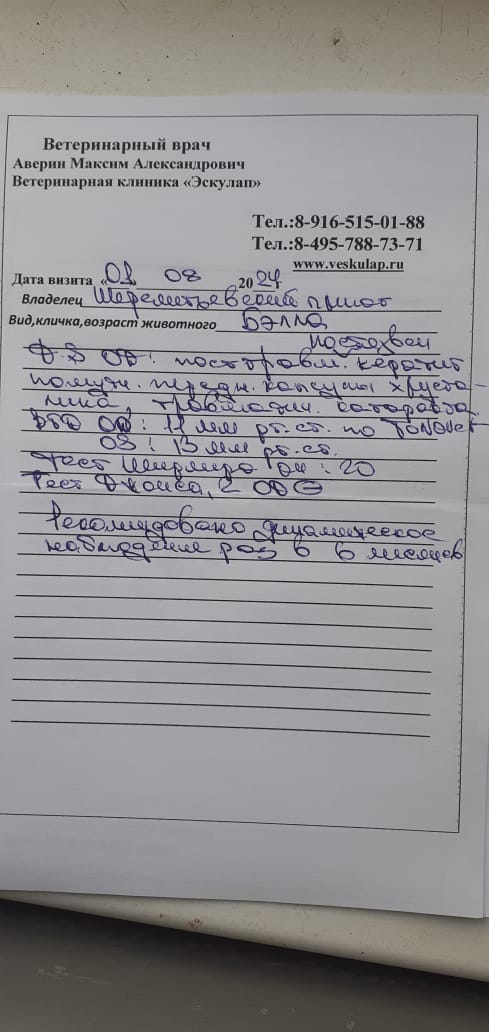 Ветеринарный врач
Аверин Максим Александрович
Ветеринарная клиника «Эскулап»
Тел.:8-916-515-01-88
Тел.:8-495-788-73-71
www.veskulap.ru
Дата визита «01 08 2024г
Владелец Шереметьевский приют
Вид,кличка,возраст животного Бэлла
D.S OD: посттравм. кератит
помутн. передн. капсулы хруста-
лика, травматич. катаракта.
ВГД OD: 11 мм рт.ст. по Tonovet
OS: 13 мм рт.ст.
Тест Ширмера ou: 20
Тест Джонса, с OD ⊖
Рекомендовано динамическое
наблюдение раз в 6 месяцев